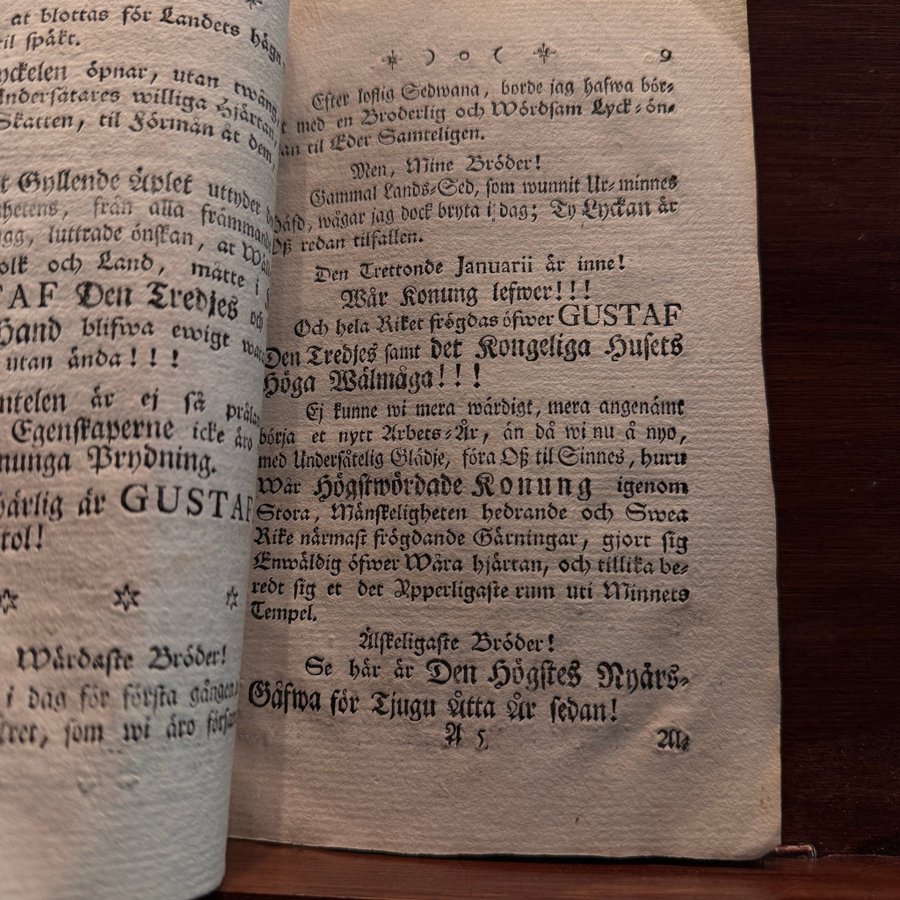 at blottas för Landets håga,
til späkt.
yckelen öpnar, utan twång,
Undersåtares williga Hjärtan,
Skatten, til Förmån åt dem
t Gyllende Äplet uttyder
hetens, från alla främmande
ägg, luttrade önskan, at
olk och Land, måtte i
TAF Den Tredjes och
Hand blifwa ewigt
utan ända!!!
ntelen är ej så prålan
Egenskaperne icke äro
nunga Prydning.
härlig är GUSTAF
tol!
Wärdaste Bröder!
i dag för första gången
ret, som wi äro förfam
) o ( 9
Efter loflig Sedwana, borde jag hafwa bör-
t med en Broderlig och Wördsam Lyck-ön-
an til Eder Samteligen.
Men, Mine Bröder!
Gammal Lands-Sed, som wunnit Ur-minnes
häfd, wågar jag dock bryta i dag; Ty Lyckan är
Oß redan tilfallen.
Den Trettonde Januarii är inne!
Wår Konung lefwer!!!
Och hela Riket frögdas öfwer GUSTAF
Den Tredjes samt det Kongeliga Husets
Höga Wälmåga!!!
Ej kunne wi mera wärdigt, mera angenämt
börja et nytt Arbets-År, än då wi nu å nyo,
med Undersåtelig Glädje, föra Oß til Sinnes, huru
Wår Högstwördade Konung igenom
Stora, Mänskeligheten hedrande och Swea
Rike närmast frögdande Gärningar, gjort sig
Enwäldig öfwer Wåra hjärtan, och tillika be-
redt sig et det Ypperligaste rum uti Minnets
Tempel.
Älskeligaste Bröder!
Se här är Den Högstes Nyårs-
Gåfwa för Tjugu Åtta År sedan!
A 5 Al-